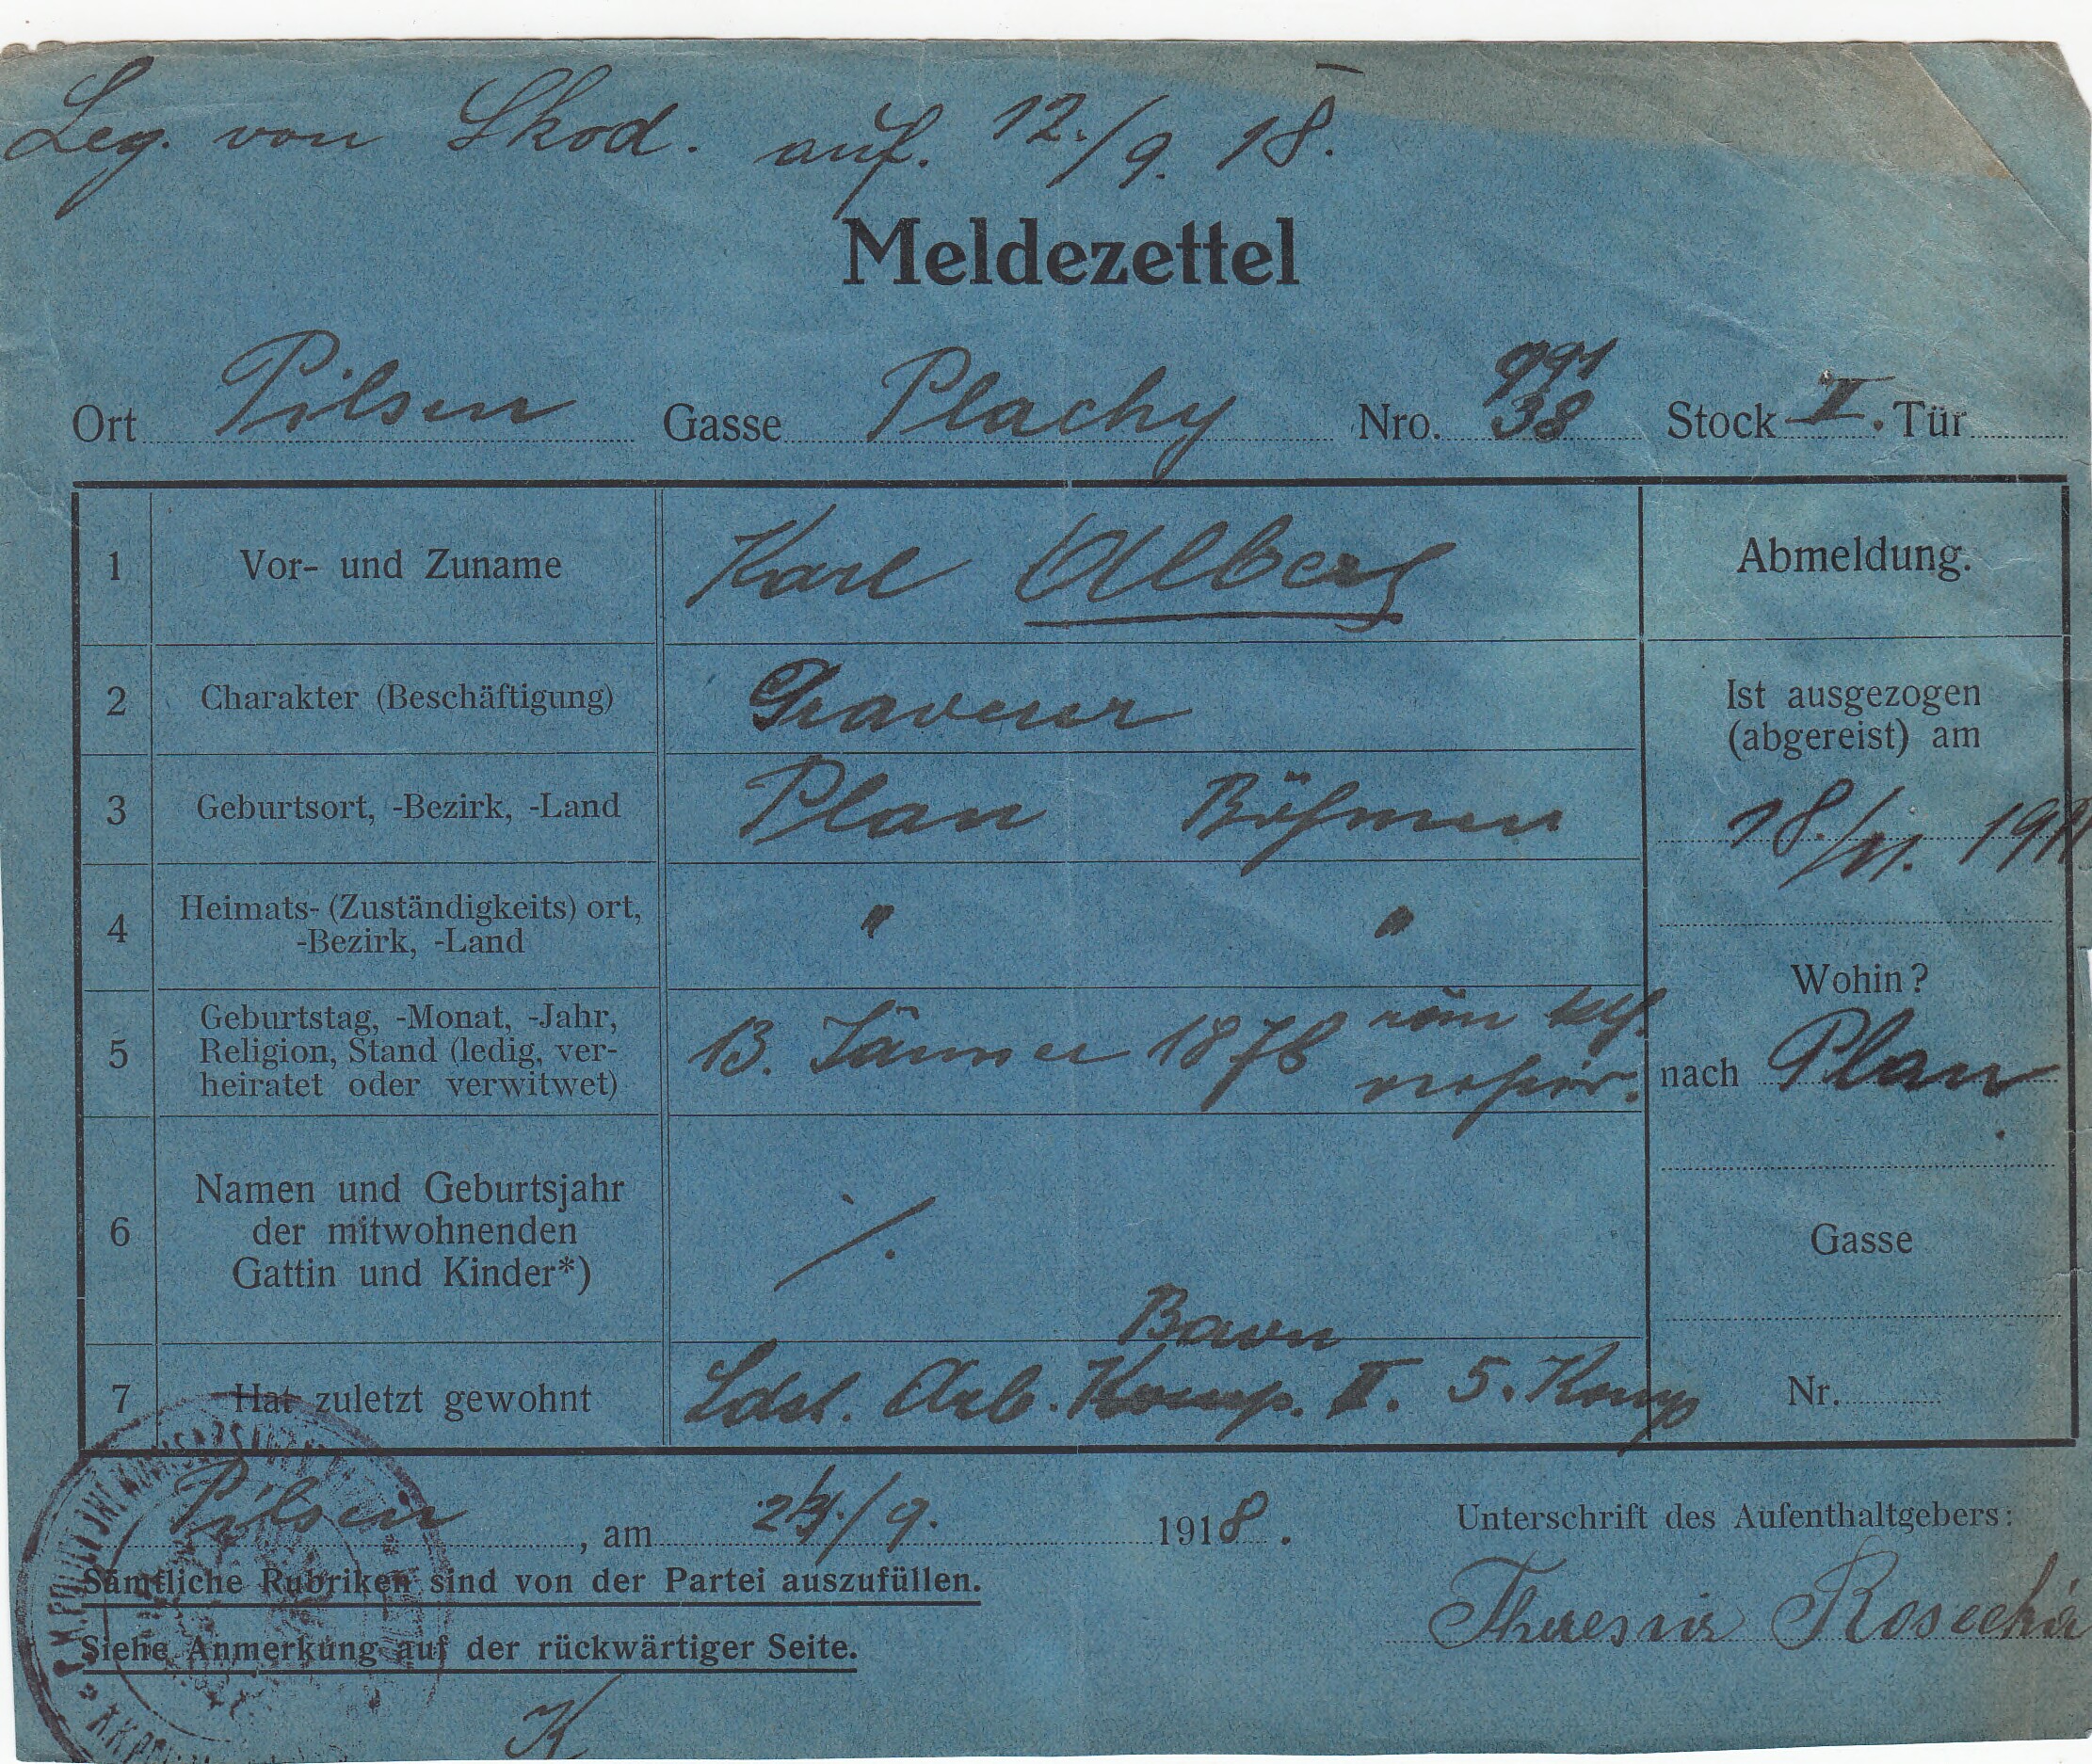 Leg. von Skod. auf. 12./9. 18.
Meldezettel
Ort Pilsen Gasse Plachy Nro. 991 38 Stock II. Tür
1 Vor- und Zuname Karl Alberg
Abmeldung.
2 Charakter (Beschäftigung) Graveur
Ist ausgezogen
(abgereist) am
3 Geburtsort, -Bezirk, -Land Plan Böhmen
18./11. 191
4 Heimats- (Zuständigkeits) ort,
-Bezirk, -Land
" "
Wohin?
nach Plan
5 Geburtstag, -Monat, -Jahr,
Religion, Stand (ledig, ver-
heiratet oder verwitwet)
13. Jänner 1876 röm
6 Namen und Geburtsjahr
der mitwohnenden
Gattin und Kinder*)
./.
Gasse
Baon
7 Hat zuletzt gewohnt Ldst. Arb. Komp. II. 5. Komp
Nr.
Pilsen, am 24./9. 1918.
Unterschrift des Aufenthaltgebers:
Sämtliche Rubriken sind von der Partei auszufüllen.
Theresia
Siehe Anmerkung auf der rückwärtiger Seite.
K